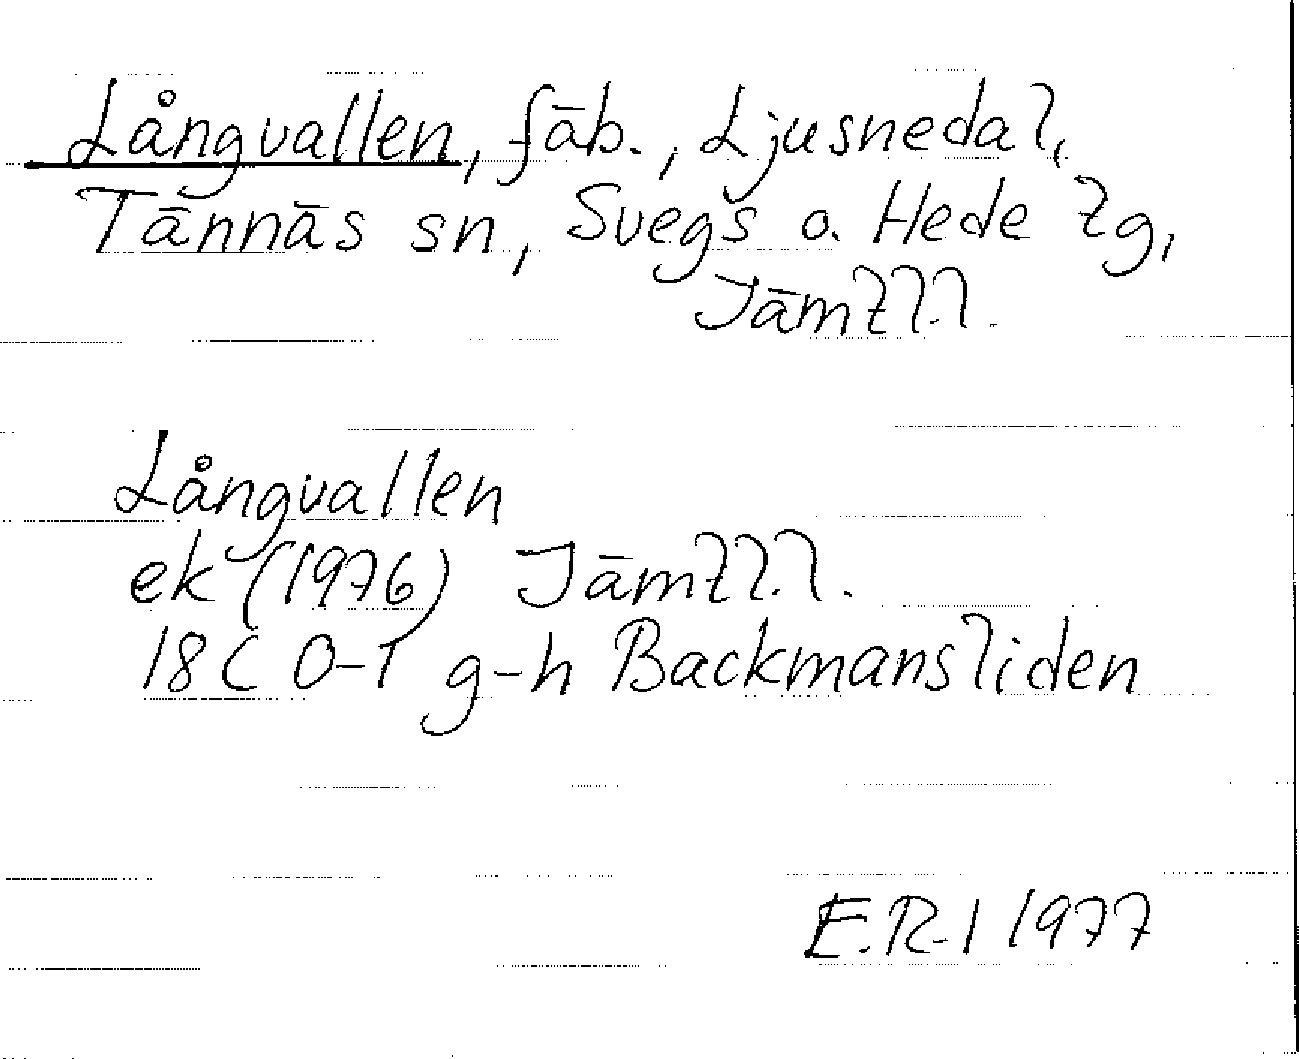 Långvallen, fäb., Ljusnedal,
Tännäs sn, Svegs o. Hede tg,
Jämtl.l.
Långvallen
ek (1976) Jämtl.l.
18C 0-1 g-h Backmansliden
E.R-l 1977